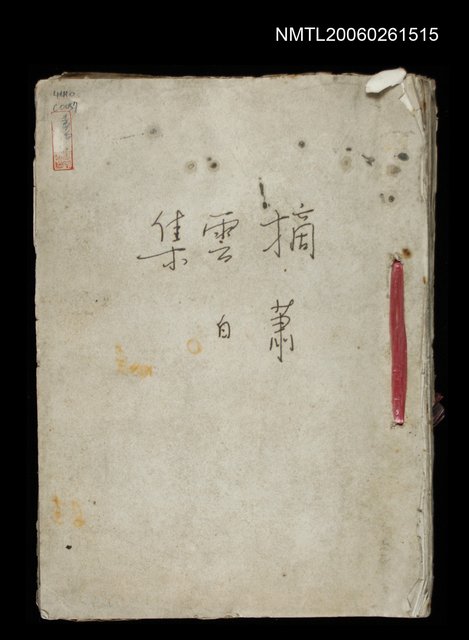 NMTL20060261515
摘雲集
蕭白